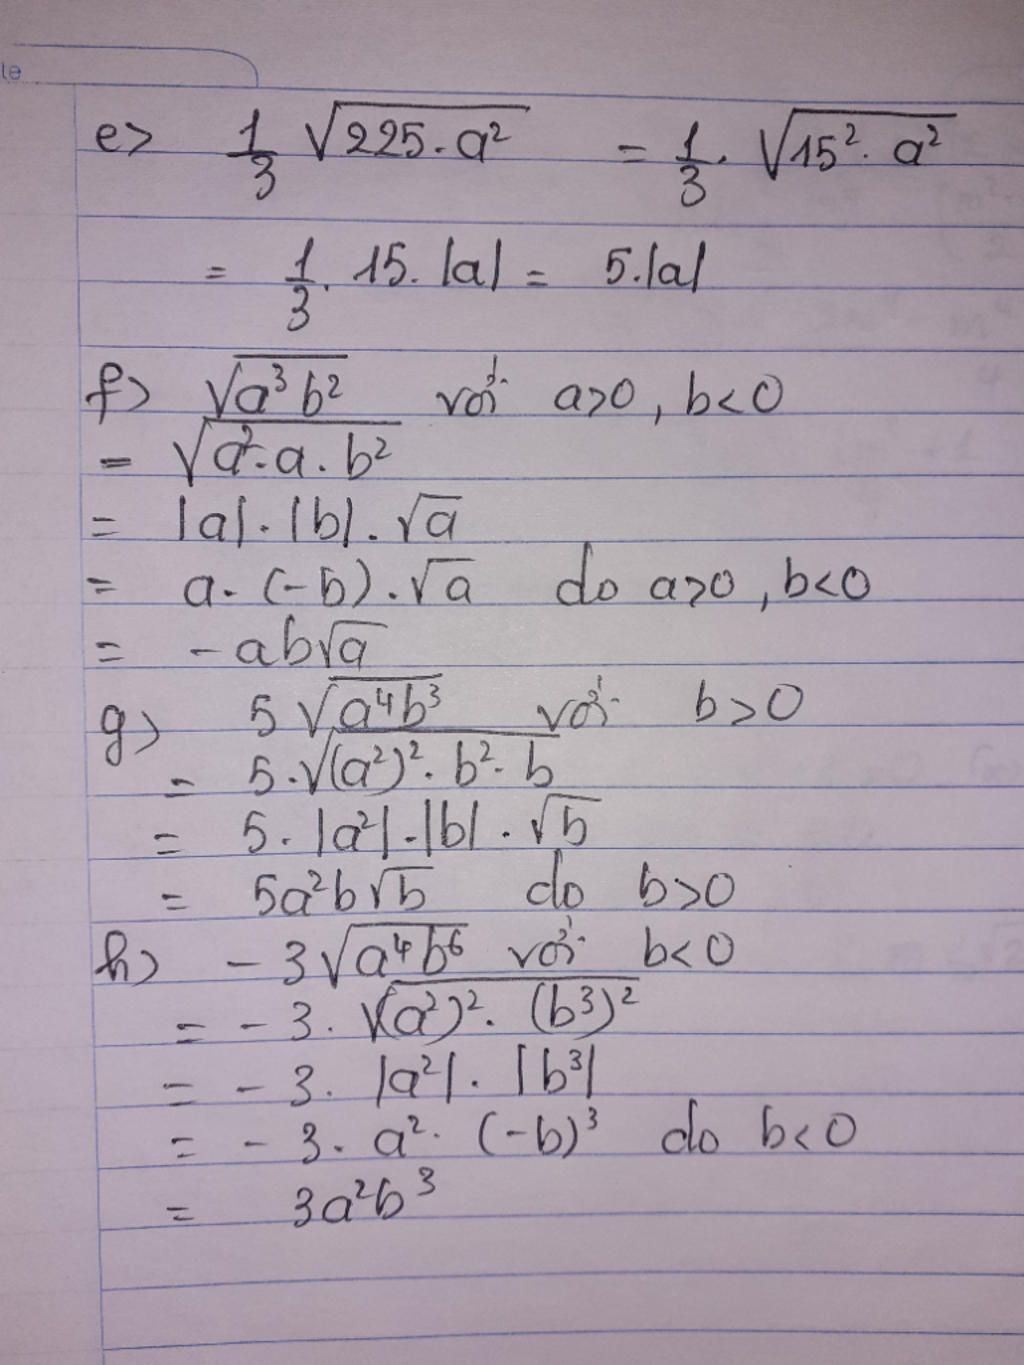 te
e> 1/3 √(225.a²) = 1/3 . √(15².a²)
= 1/3 . 15.|a| = 5.|a|
f> √(a³b²) với a>0, b<0
= √(a².a.b²)
= |a|.|b|.√a
= a.(-b).√a do a>0, b<0
= -ab√a
g> 5√(a⁴b³) với b>0
= 5.√((a²)².b².b)
= 5.|a²|.|b|.√b
= 5a²b√b do b>0
h> -3√(a⁴b⁶) với b<0
= -3.√((a²)².(b³)²)
= -3.|a²|.|b³|
= -3.a².(-b)³ do b<0
= 3a²b³